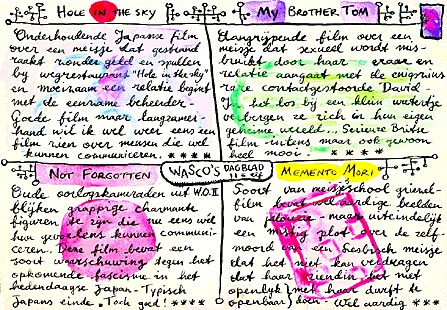 HOLE IN THE SKY
Onderhoudende Japanse film
over een meisje dat gestrand
raakt zonder geld en spullen
bij wegrestaurant "Hole in the sky"
en moeizaam een relatie begint
met de eenzame beheerder-
Goede film maar langzamer-
hand wil ik wel weer eens een
film zien over mensen die wel
kunnen communiceren. ****
MY BROTHER TOM
Aangrijpende film over een
meisje dat sexueel wordt mis-
bruikt door haar leraar en
relatie aangaat met de enigszins
contactgestoorde David-
In het bos bij een klein watertje
verbergen ze zich in hun eigen
geheime wereld... Serieuze Britse
film-intens maar ook gewoon
heel mooi. ****
WASCO'S DAGBLAD
NOT FORGOTTEN
Oude oorlogskameraden uit W.O.II
blijken grappige charmante
figuren te zijn die nu eens wel
hun gevoelens kunnen communi-
ceren.. Deze film bevat een
soort waarschuwing tegen het
opkomende fascisme in het
hedendaagse Japan-Typisch
Japans einde. Toch goed! ****
MEMENTO MORI
Soort van meisjesschool griezel-
film bevat wel aardige beelden
van - maar uiteindelijk
een mistig plot over de zelf-
moord van een lesbisch meisje
dat het niet kan verdragen
dat haar vriendin het niet
openlijk met haar durft te
openbaar doen. Wel aardig ***